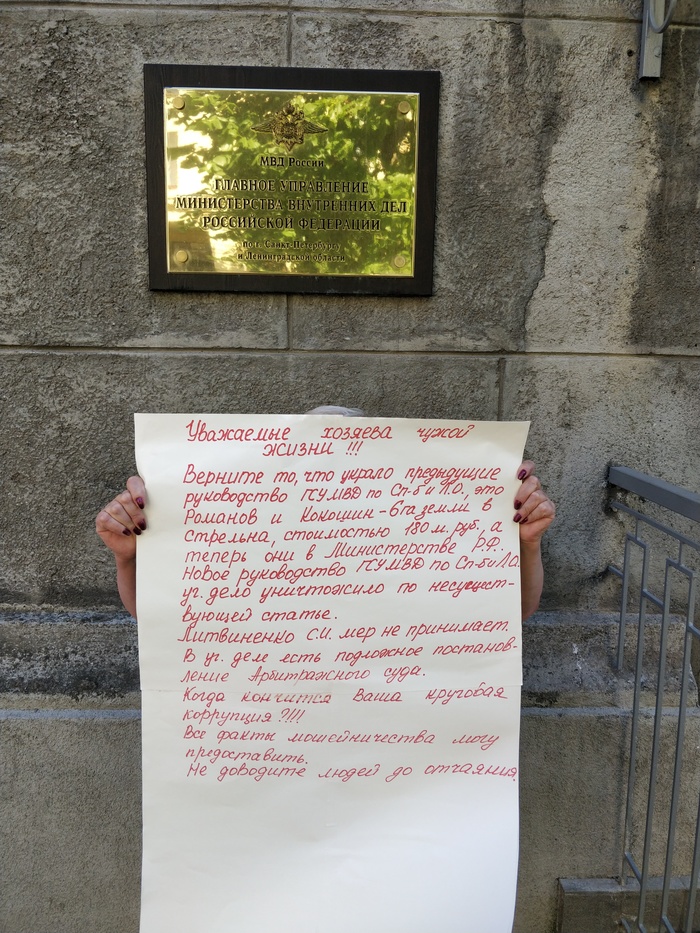 МВД России
ГЛАВНОЕ УПРАВЛЕНИЕ
МИНИСТЕРСТВА ВНУТРЕННИХ ДЕЛ
РОССИЙСКОЙ ФЕДЕРАЦИИ
по г. Санкт-Петербургу
и Ленинградской области
Уважаемые хозяева чужой
жизни !!!
Верните то, что украло предыдущие
руководство ГСУМВД по Сп-б и Л.О., это
Романов и Кокошин - 6 га земли в
стрельна, стоимостью 180 м. руб., а
теперь они в Министерстве Р.Ф.
Новое руководство ГСУМВД по Сп-б и Л.о.
уг. дело уничтожило по несущест-
вующей статье.
Литвиненко С.И. мер не принимает.
В уг. деле есть подложное постанов-
ление Арбитражного суда.
Когда кончится Ваша круговая
коррупция ?!!!
Все факты мошейничества могу
предоставить.
Не доводите людей до отчаяния.